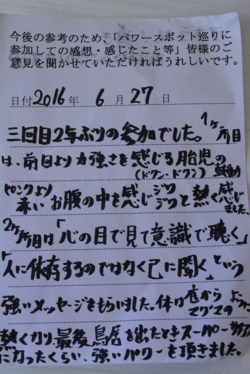 今後の参考のため、「パワースポット巡りに
参加しての感想・感じたこと等」皆様のご
意見を聞かせていただければうれしいです。
日付2016年 6月 27日
三回目2年ぶりの参加でした。1ヶ所目
は、前日より力強さを感じる胎児の
(ドクン・ドクン) 鼓動
赤いお腹の中を感じジワジワと熱く感じ
ました
2ヶ所目は「心の目で見て意識で聴く」
「人に依存するのではなく己に聞く」という
強いメッセージをもらいました。体の底から
マグマの
熱くなり、最後鳥居を出たときスーパーサイヤ人
になったくらい、強いパワーを頂きました。